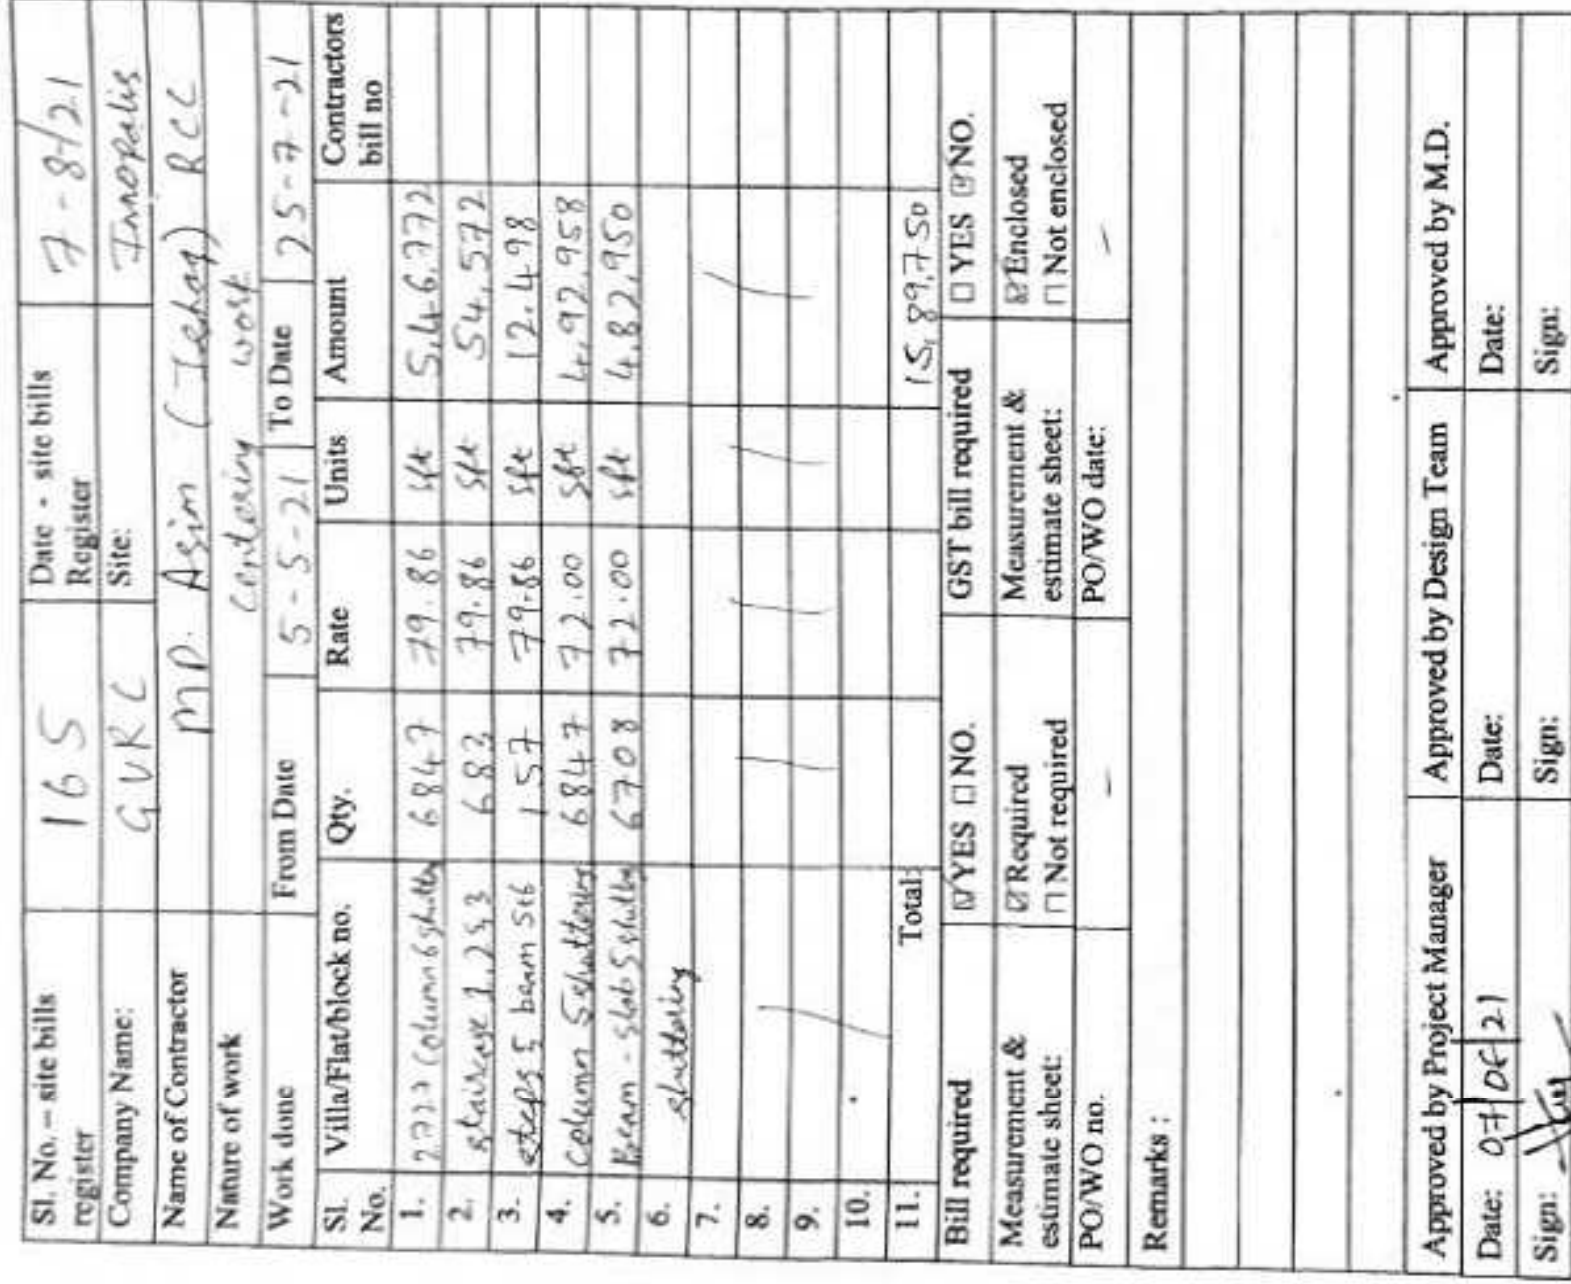 Sl. No. – site bills register 165 Date - site bills Register 7-8/21
Company Name: GVRC Site: Innopolis
Name of Contractor MD. Asim (Ishaq) RCC
Nature of work centering work
Work done From Date 5-5-21 To Date 25-7-21
Sl. No. Villa/Flat/block no. Qty. Rate Units Amount Contractors bill no
1. 2727 Column 6 shutter 6847 79.86 sft 5,46,772
2. staircase 1,2&3 683 79.86 sft 54,572
3. steps & beam St6 157 79.86 sft 12,498
4. Column 5 shuttering 6847 72.00 sft 4,92,958
5. Beam - Slab 5 shutte 6708 72.00 sft 4,82,950
6. shuttering
7.
8.
9.
10.
11. Total: 15,89,750
Bill required ☑ YES ☐ NO. GST bill required ☐ YES ☑ NO.
Measurement & estimate sheet: ☑ Required ☐ Not required Measurement & estimate sheet: ☑ Enclosed ☐ Not enclosed
PO/WO no. – PO/WO date: –
Remarks :
Approved by Project Manager Approved by Design Team Approved by M.D.
Date: 07/08/21 Date: Date:
Sign: Sign: Sign: